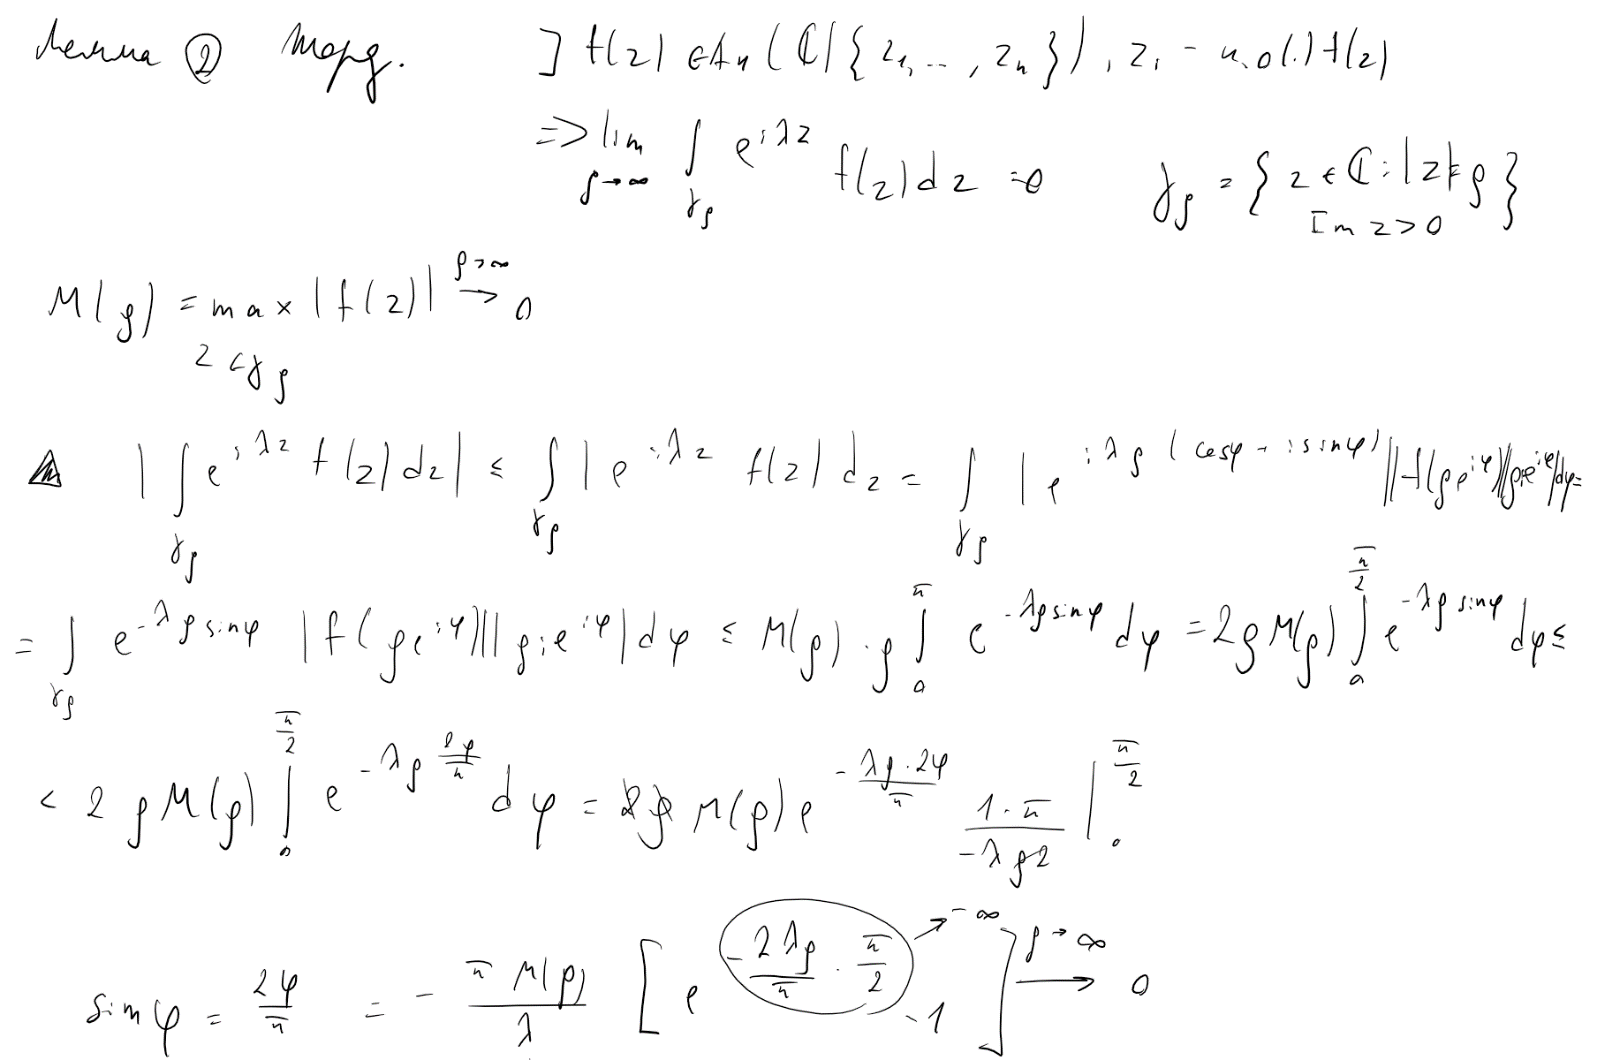 Лемма ② Жорд. ] f(z) ∈ An(ℂ|{z₁, ..., zₙ}), zᵢ - и.о(.) f(z)
=> lim_{ρ→∞} ∫_{γ_ρ} e^{iλz} f(z)dz = 0 γ_ρ = {z ∈ ℂ: |z|=ρ} Im z>0
M(ρ) = max_{z∈γ_ρ} |f(z)| →^{ρ→∞} 0
|∫_{γ_ρ} e^{iλz} f(z)dz| ≤ ∫_{γ_ρ} |e^{iλz} f(z)| dz = ∫_{γ_ρ} |e^{iλρ(cosφ + i sinφ)}||f(ρe^{iφ})||ρie^{iφ}|dφ=
= ∫_{γ_ρ} e^{-λρ sinφ} |f(ρe^{iφ})||ρie^{iφ}|dφ ≤ M(ρ)·ρ ∫_0^π e^{-λρsinφ} dφ = 2ρM(ρ) ∫_0^{π/2} e^{-λρ sinφ} dφ ≤
< 2ρM(ρ) ∫_0^{π/2} e^{-λρ 2φ/π} dφ = 2ρ M(ρ) e^{-λρ·2φ/π} (1·π)/(-λρ2) |_0^{π/2}
sin φ = 2φ/π = - πM(ρ)/λ [e^{-2λρ/π · π/2} → -∞ -1] →^{ρ→∞} 0